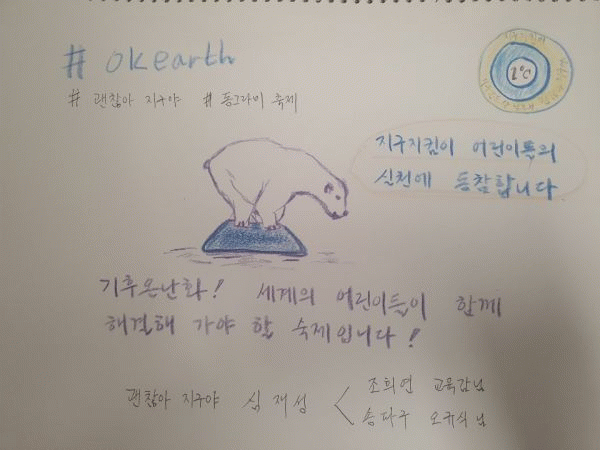 # okearth
# 괜찮아 지구야 # 동그라미 축제
1°C
지구지킴이 어린이들의
실천에 동참합니다.
기후온난화! 세계의 어린이들이 함께
해결해 가야 할 숙제입니다!
괜찮아 지구야 심재성
조희연 교육감님
송다구 오규식 님